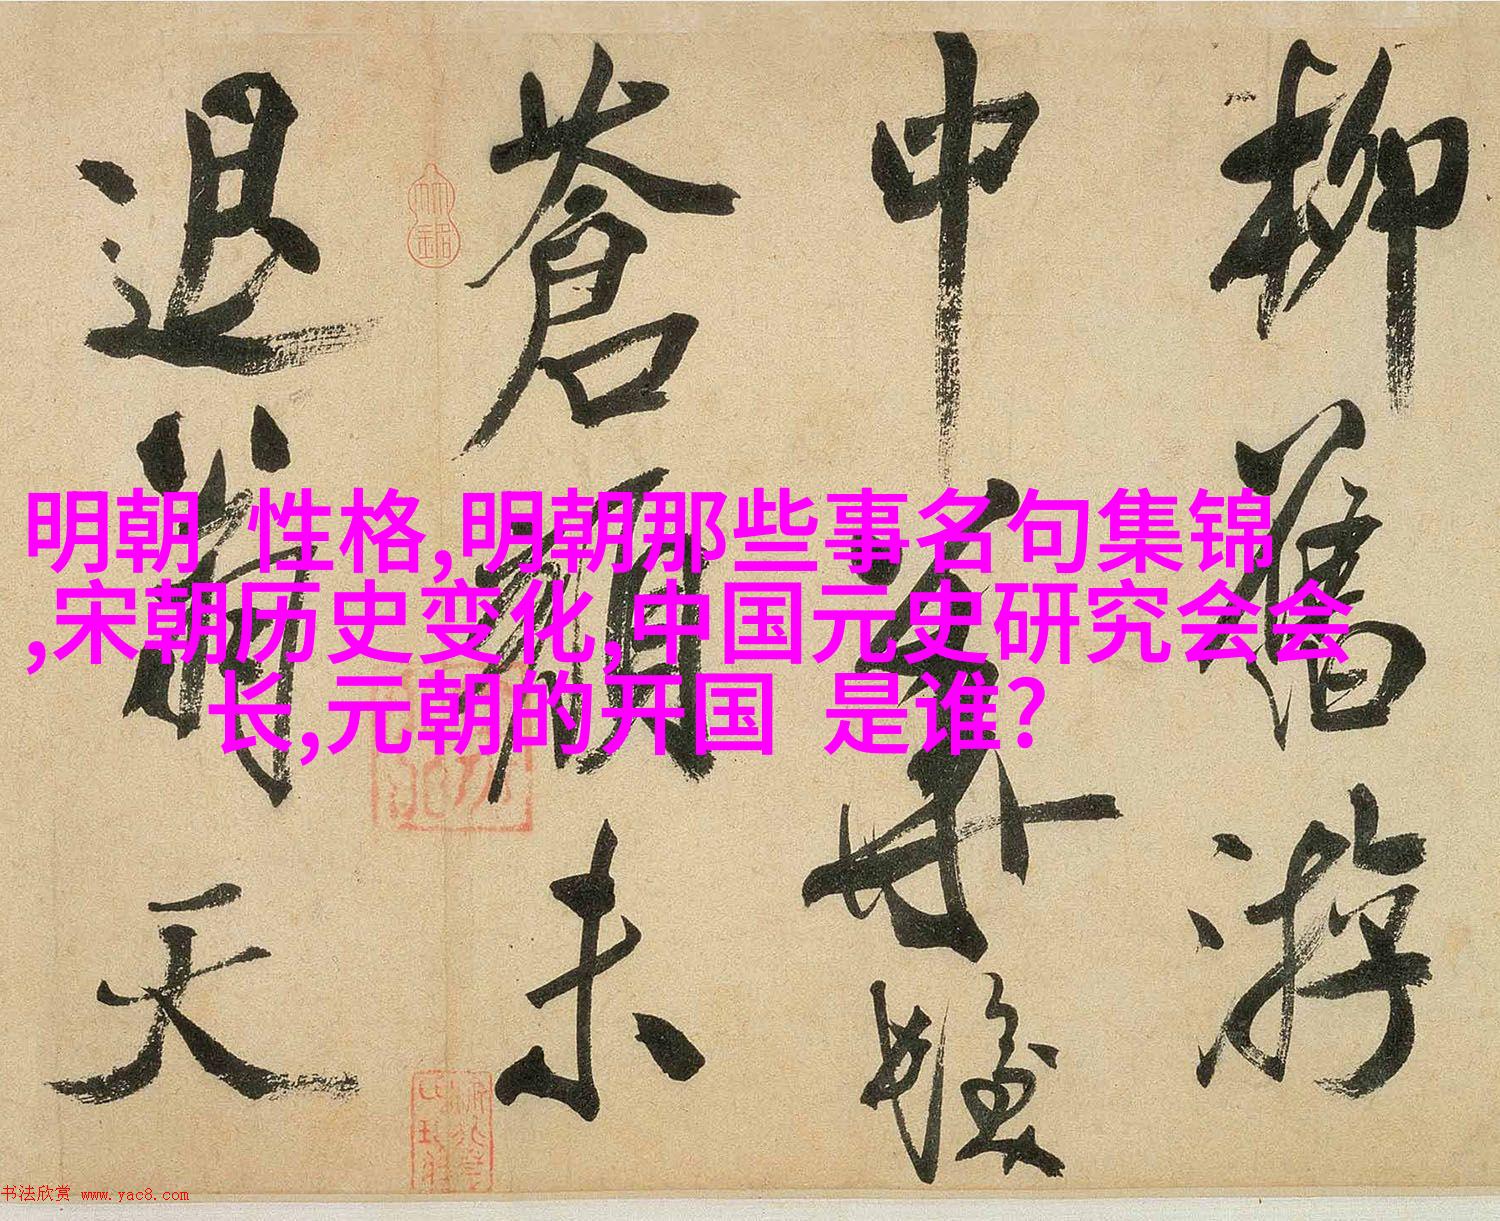 柳舊游
中
蒼顏未
退
天
明朝 性格,明朝那些事名句集锦
,宋朝历史变化,中国元史研究会会
长,元朝的开国 是谁?
书法欣赏 www.yac8.com